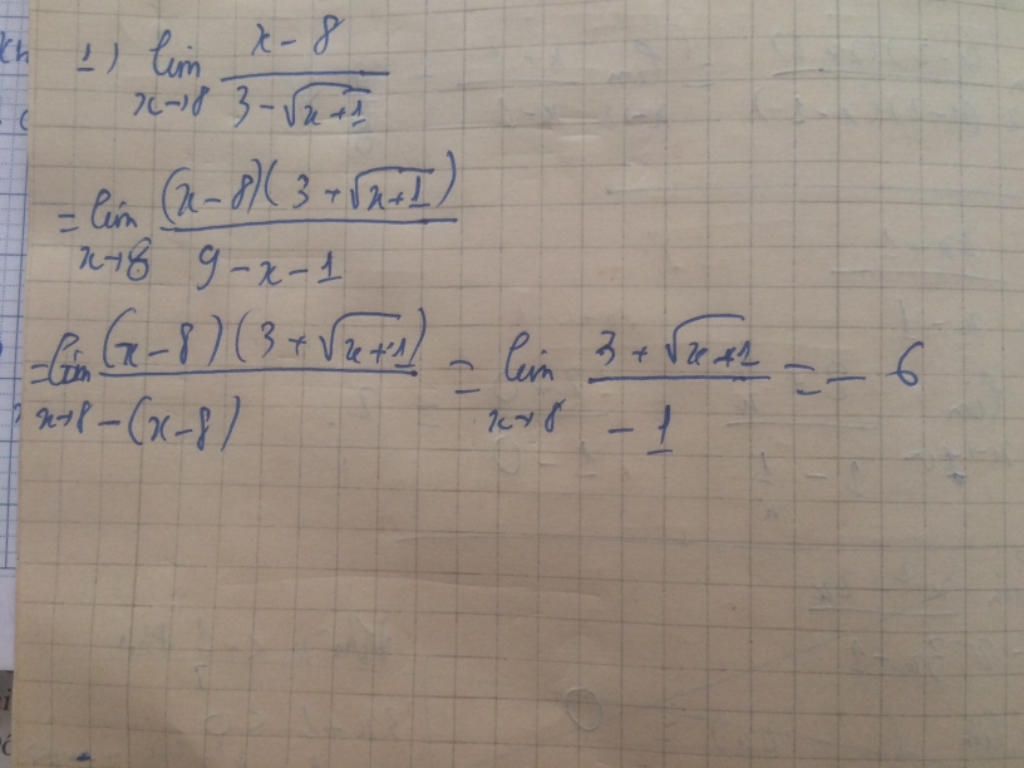 1) lim x→8 (x - 8)/(3 - √(x+1))
= lim x→8 ((x-8)(3 + √(x+1)))/(9 - x - 1)
= lim x→8 ((x-8)(3 + √(x+1)))/(-(x-8)) = lim x→8 (3 + √(x+1))/(-1) = - 6